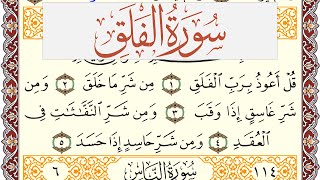 سُورَةُ الفَلَقِ
قُلْ أَعُوذُ بِرَبِّ الْفَلَقِ ١ مِن شَرِّ مَا خَلَقَ ٢ وَمِن
شَرِّ غَاسِقٍ إِذَا وَقَبَ ٣ وَمِن شَرِّ النَّفَّاثَاتِ فِي
الْعُقَدِ ٤ وَمِن شَرِّ حَاسِدٍ إِذَا حَسَدَ ٥
١١٤ سُورَةُ النَّاسِ ٦